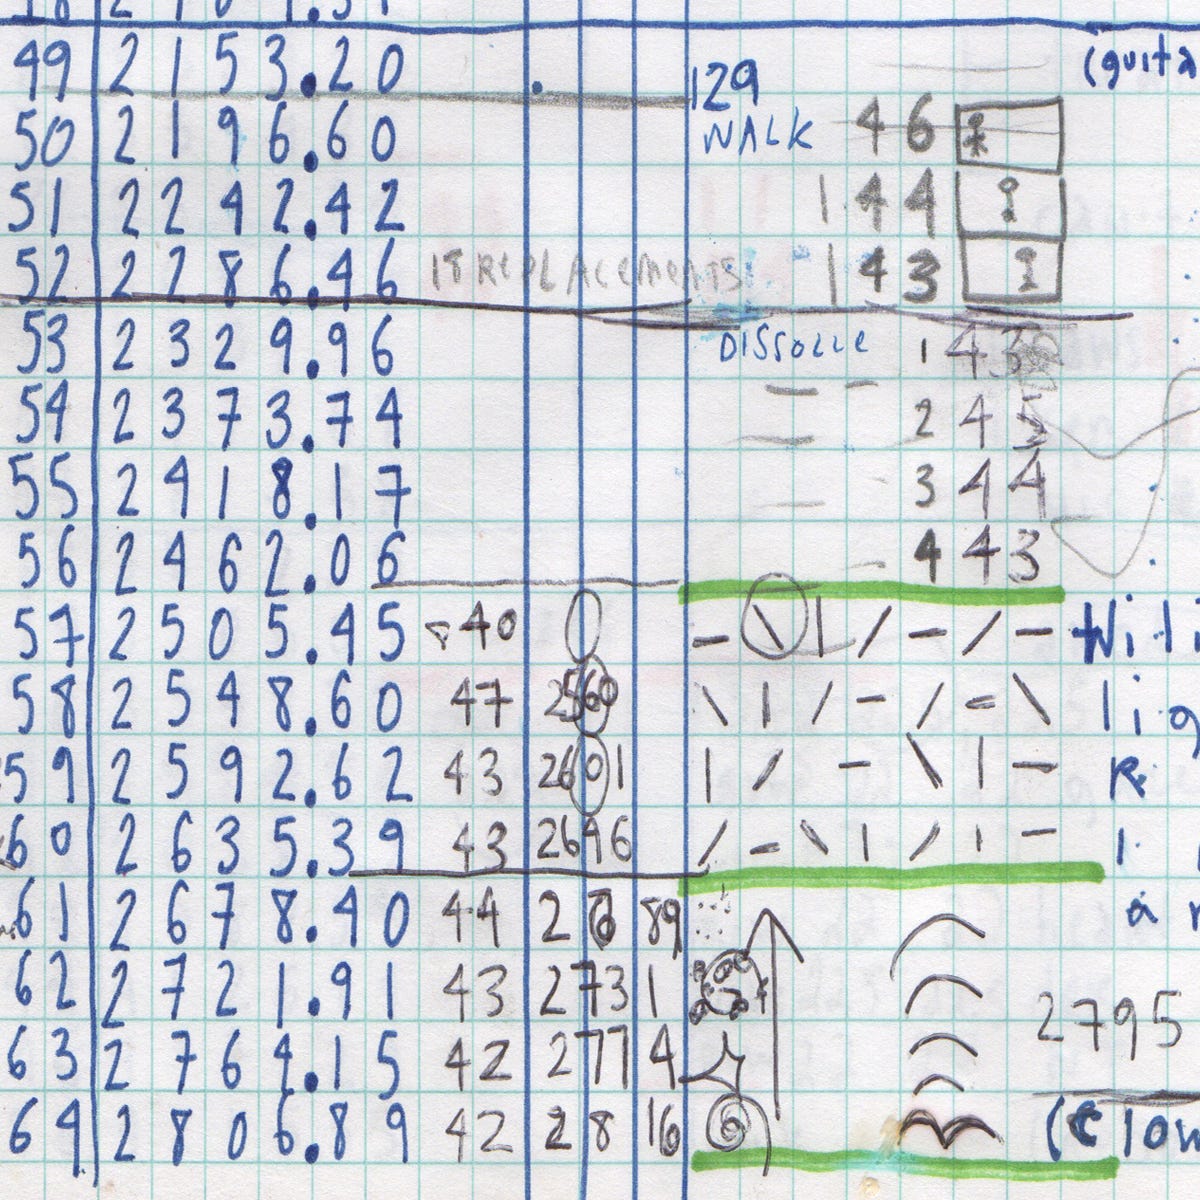 49 2153.20 129 (guita
50 2196.60 WALK 46
51 2242.42 144
52 2286.46 18 REPLACEMENTS 143
53 2329.96 DISSOLVE 1 43
54 2373.74 2 45
55 2418.17 3 44
56 2462.06 4 43
57 2505.45 40
58 2548.60 47 2560 lig
59 2592.62 43 2601
60 2635.39 43 2646
61 2678.40 44 26 89
62 2721.91 43 2731 2795
63 2764.15 42 2774
64 2806.89 42 2816 (Clow